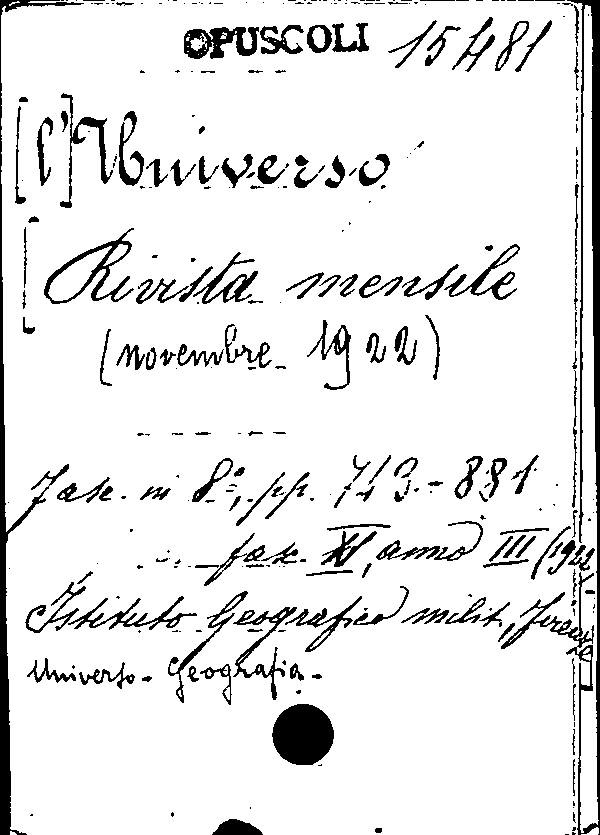 OPUSCOLI 15481
[l'] Universo
[Rivista mensile
(novembre 1922)
Fasc. in 8º, pp. 743-831
fasc. XI, anno III (1922
Istituto Geografico milit., Firenze
Universo - Geografia -